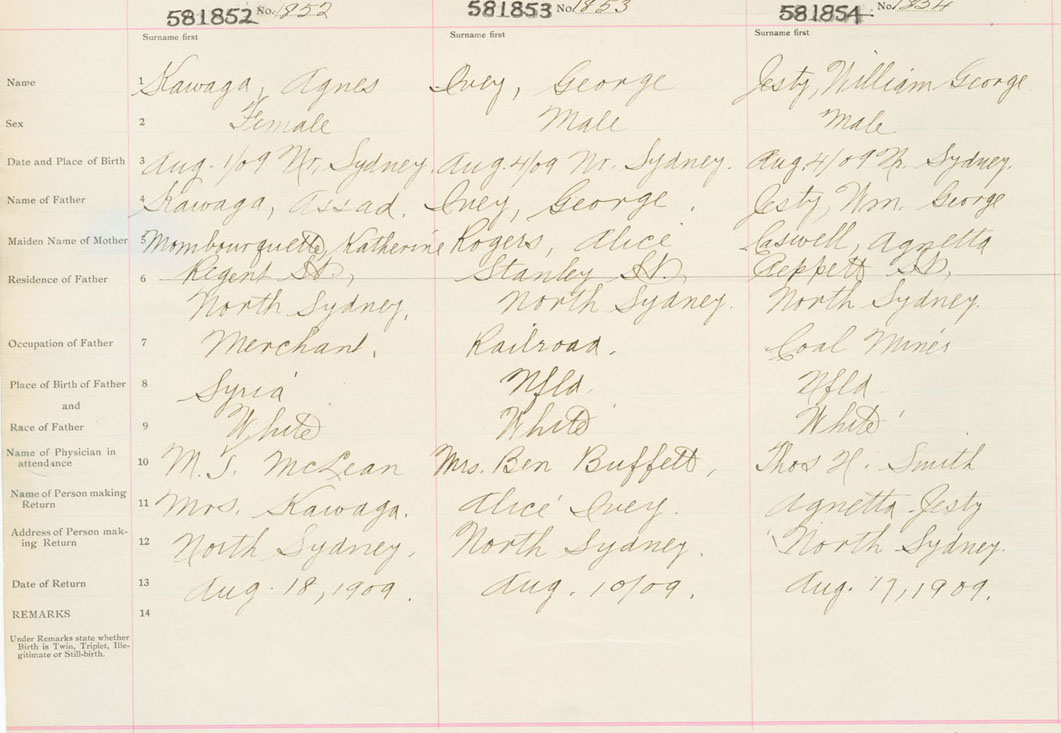 581852 No. 1852 581853 No. 1853 581854 No. 1854
Surname first Surname first Surname first
Name 1 Kawaga, Agnes Ivey, George Jesty, William George
Sex 2 Female Male Male
Date and Place of Birth 3 Aug. 1/09 Nr. Sydney. Aug. 4/09 Nr. Sydney. Aug. 4/09 N. Sydney.
Name of Father 4 Kawaga, Assad. Ivey, George. Jesty, Wm George
Maiden Name of Mother 5 Mombourquette, Katherine Rogers, Alice Caswell, Agnetta
Residence of Father 6 Regent St., Stanley St., Peppett St,
North Sydney, North Sydney. North Sydney.
Occupation of Father 7 Merchant, Railroad. Coal Miner
Place of Birth of Father 8 Syria Nfld. Nfld.
and
Race of Father 9 White White White
Name of Physician in
attendance 10 M. T. McLean Mrs. Ben Buffett, Thos H. Smith
Name of Person making
Return 11 Mrs. Kawaga. Alice Ivey. Agnetta Jesty
Address of Person mak-
ing Return 12 North Sydney, North Sydney. North Sydney.
Date of Return 13 Aug. 18, 1909. Aug. 10/09. Aug. 17, 1909.
REMARKS 14
Under Remarks state whether
Birth is Twin, Triplet, Ille-
gitimate or Still-birth.